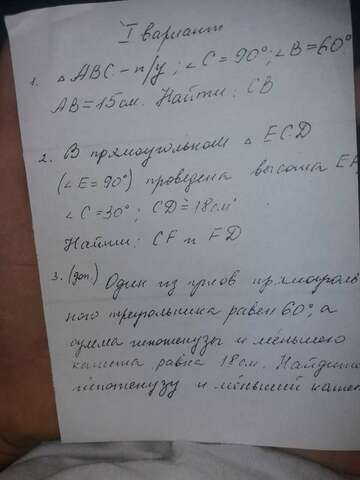 I вариант
1. △ ABC - п/у; ∠C = 90°; ∠B = 60°
AB = 15 см. Найти: CB
2. В прямоугольном △ ECD
(∠E = 90°) проведена высота EF
∠C = 30°; CD = 18 см
Найти: CF и FD
3. (доп.) Один из углов прямоуголь
ного треугольника равен 60°, а
сумма гипотенузы и меньшего
катета равна 18 см. Найдите
гипотенузу и меньший катет